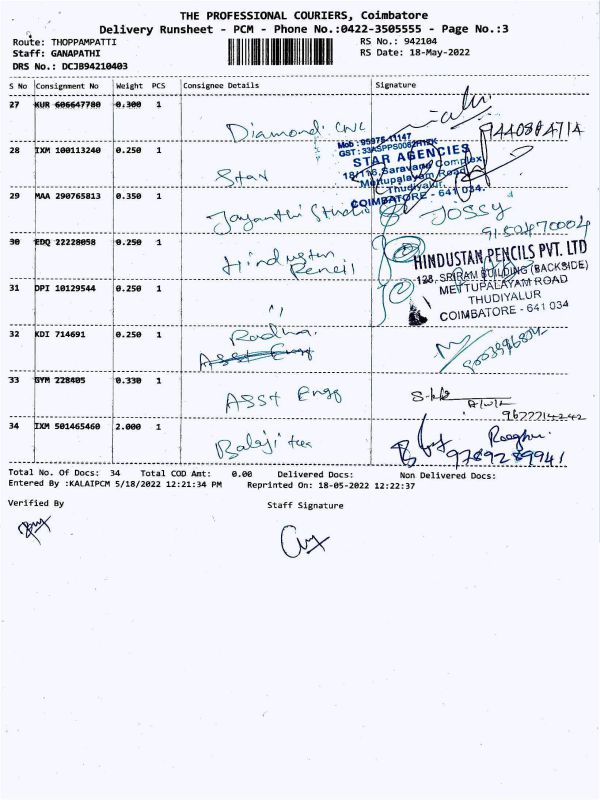 THE PROFESSIONAL COURIERS, Coimbatore
Delivery Runsheet - PCM - Phone No.:0422-3505555 - Page No.:3
Route: THOPPAMPATTI
RS No.: 942104
Staff: GANAPATHI
RS Date: 18-May-2022
DRS No.: DCJB94210403
S No Consignment No Weight PCS Consignee Details Signature
27 KUR 606647780 0.300 1 Diamond CNC
28 IXM 100113240 0.250 1 Star
Mob : 95975 11147
STAR AGENCIES
18/116, Saravana Complex,
Mettupalayam Road,
Thudiyalur,
COIMBATORE - 641 034.
29 MAA 290765813 0.350 1 Jayanthi Studio JOSSY
9152470004
30 EDQ 22228058 0.250 1 Hindustan
Pencil
HINDUSTAN PENCILS PVT. LTD
128, SRIRAM BUILDING (BACKSIDE)
METTUPALAYAM ROAD
THUDIYALUR
COIMBATORE - 641 034
31 DPI 10129544 0.250 1 "
32 KDI 714691 0.250 1 Radha.
Asst Engg
33 GYM 228405 0.330 1 Asst Engg
34 IXM 501465460 2.000 1 Balaji tex
9789289941
Total No. Of Docs: 34 Total COD Amt: 0.00 Delivered Docs: Non Delivered Docs:
Entered By :KALAIPCM 5/18/2022 12:21:34 PM Reprinted On: 18-05-2022 12:22:37
Verified By Staff Signature